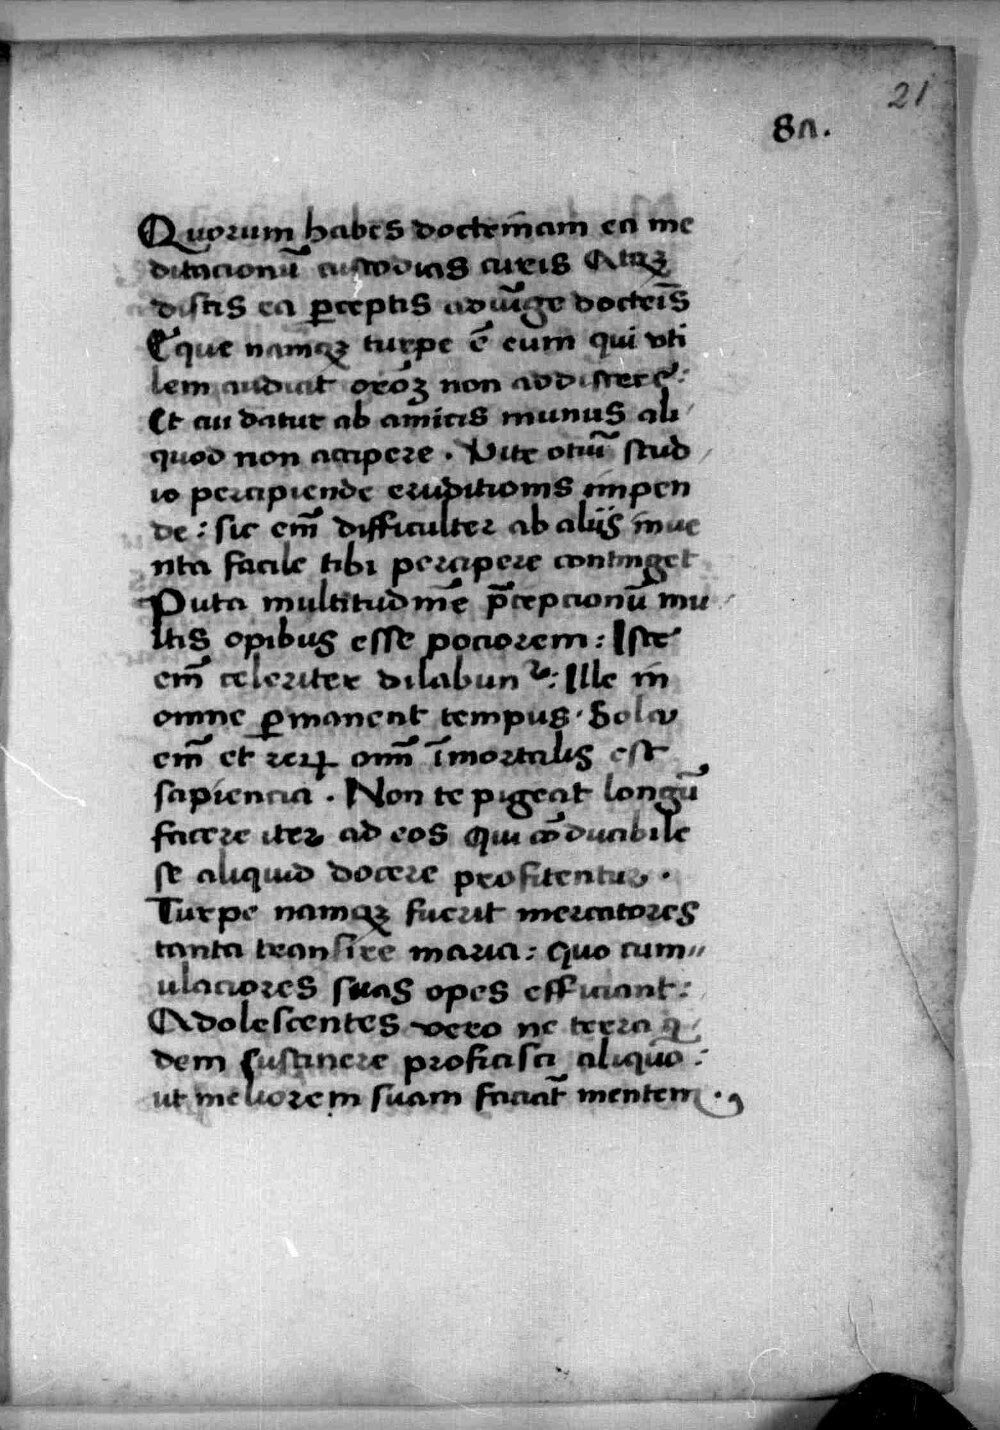 21
8a.
Quorum habes doctrinam ea me
ditacionū custodias curis Atqꝫ
discis ea ꝑceptis adiūge doctrīs
Eque namqꝫ turpe ē eum qui uti
lem audiat orōꝫ non addiscere:
Et cui datur ab amicis munus ali
quod non accipere. Vite otiū stud
io percipiende eruditionis impen
de: sic em̄ difficulter ab aliis inue
nta facile tibi percipere continget
Puta multitudinē p̄cepcionū mu
ltis opibus esse pociorem: Iste
em̄ celeriter dilabunᷣ: Ille in
omne ꝑmanent tempus. Sola
em̄ et reꝝ om̄ īmortalis est
sapiencia. Non te pigeat longū
facere iter ad eos qui cōducibile
se aliquid docere profitentur.
Turpe namqꝫ fuerit mercatores
tanta transire maria: quo cum〃
ulaciores suas opes efficiant:
Adolescentes vero ne terra q
dem sustinere proficisci aliquo:
ut meliorem suam faciāt mentem.